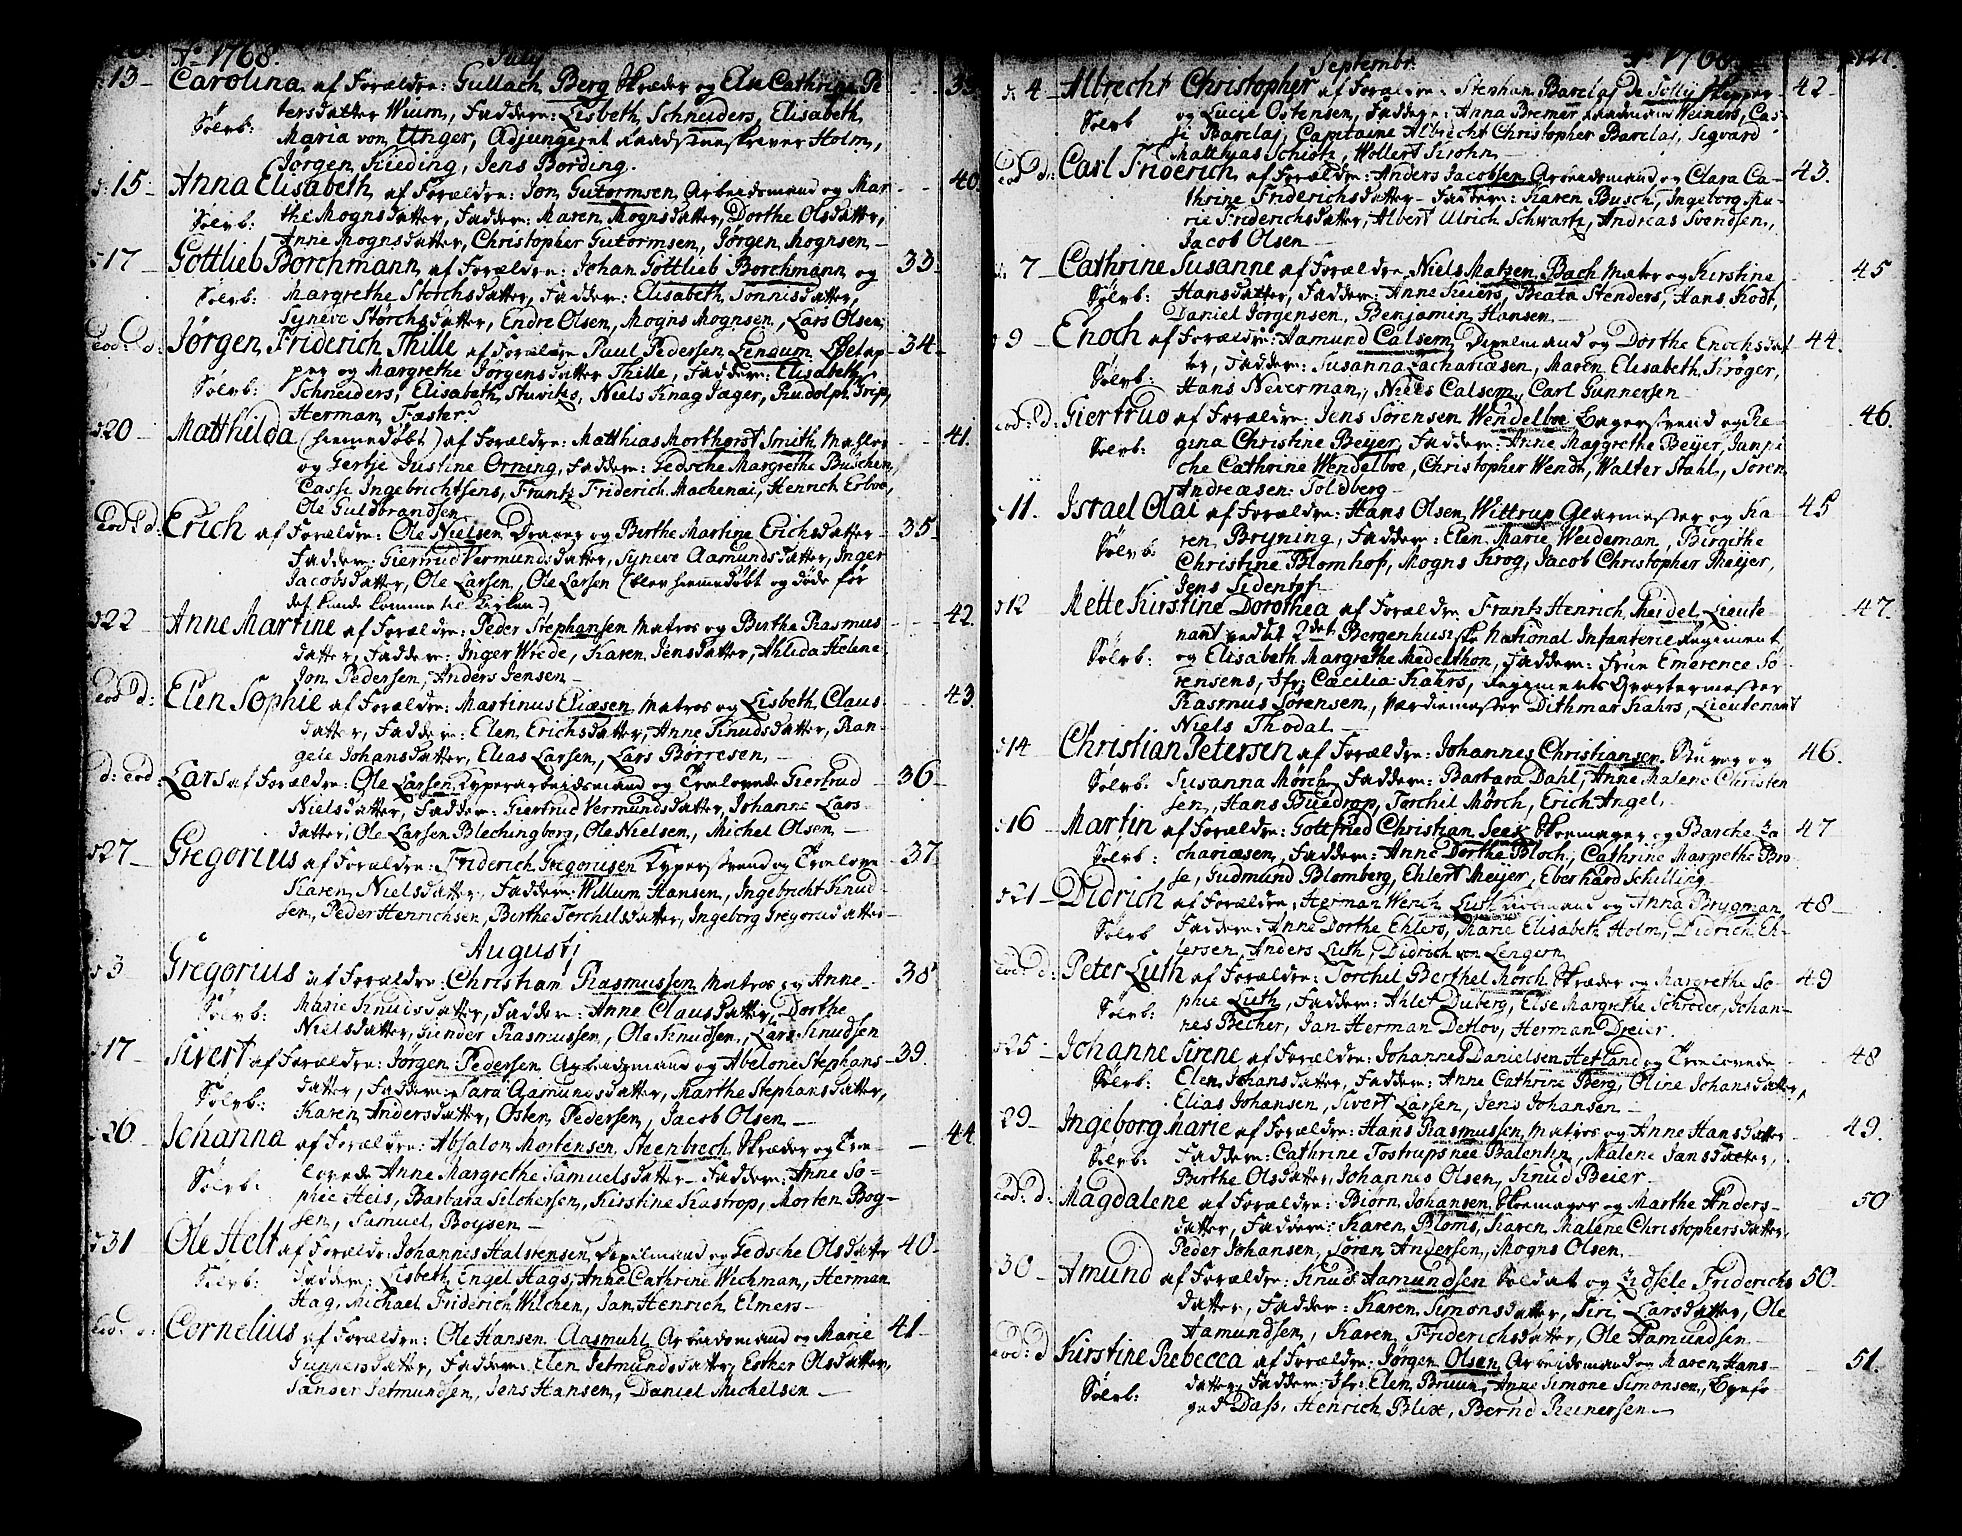 Ao 1768. July
13 - Carolina af Forældre: Gullach Berg Skræder og Else Cathrine Pe- 39
Sölvb: tersdatter Wium, Faddere: Lisbeth Schneiders, Elisabeth
Maria von Unger, Adjungeret Raadstueskriver Holm,
Jørgen Kieding, Jens Bording.
d: 15 - Anna Elisabeth af Forældre: Jon Gutormsen Arbeidsmand og Mar- 40
Sölvb: the Mognsdatter, Faddere: Maren Mognsdatter, Dorthe Olsdatter,
Anne Mognsdatter, Christopher Gutormsen, Jørgen Mognsen -
17 - Gottlieb Borchmann af Forældre: Johan Gottlieb Borchmann og 33
Sölvb: Margrethe Storchsdatter, Faddere: Elisabeth Tönnisdatter,
Syneve Störchsdatter, Endre Olsen, Mogns Mognsen, Lars Olsen
eod: d: Jørgen Friderich Thille af Forældre Paul Pedersen Lensum 34
Sölvb: per og Margrethe Jörgensdatter Thille, Faddere: Elisabeth
Schneiders, Elisabeth Stuvitz, Niels Knag Jæger, Rudolph Trip,
Herman Fæster
d20 - Matthilda (hiemmedöbt) af Forældre: Matthias Morthorst Smith 41.
og Gertje Justine Orning, Faddere: Gedsche Margrethe Büschen,
Casse Ingebrichtsens, Frantz Friderich Machenai, Henrich Erboe,
Ole Guldbrandsen
Eod: d: Erich af Forældre: Ole Nielsen Drager og Birthe Martine Erichsdatter 35
Faddere: Giertrud Vermundsdatter, Syneve Aamundsdatter, Inger
Jacobsdatter, Ole Larsen, Ole Larsen (blev hiemmedöbt og döde för
det kunde komme til Kirken)
d22 Anne Martine af Forældre: Peder Stephansen Matros og Birthe Rasmus 42
datter, Faddere: Inger Wrede, Karen Jensdatter, Ahlida Helene
Jon Pedersen, Anders Jensen -
eod d: Elen Sophie af Forældre: Martinus Eliæsen Matros og Lisbeth Claus 43
datter, Faddere: Elen Erichsdatter, Anne Knudsdatter, Ran-
gele Johansdatter, Elias Larsen, Lars Børresen -
d: eod Lars af Forældre: Ole Larsen Kyperarbeidsmand og Trolovede Giertrud 36
Nielsdatter, Faddere: Giertrud Vermundsdatter, Johanne Lars-
datter, Ole Larsen Blechingberg, Ole Nielsen, Michel Olsen -
d27 - Gregorius af Forældre: Friderich Gregoriisen Kypersvend og Trolove 37
Karen Nielsdatter, Faddere: Willum Hansen, Ingebricht Knud-
sen, Peder Henrichsen, Birthe Torchelsdatter, Ingeborg Gregoriidatter -
Augustj
d3 Gregorius af Forældre: Christian Rasmussen Matros og Anne 38
Sölvb: Marie Knudsdatter, Faddere: Anne Clausdatter, Dorthe
Nielsdatter, Gunder Rasmussen, Ole Knudsen, Lars Knudsen
17 - Sivert af Forældre: Jørgen Pedersen Arbeidsmand og Abelone Stephans 39
Sölvb: datter, Faddere: Sara Aamundsdatter, Marthe Stephansdatter,
Karen Andersdatter, Osten Pedersen, Jacob Olsen -
26 - Johanna af Forældre: Absalon Mortensen Steenbrech Skræder og Tro- 44
Sölvb: lovede Anne Margrethe Samuelsdatter - Faddere: Anne So-
phie Heis, Barbara Silchersen, Kirstine Kastrop, Morten Bog-
sen, Samuel Boysen -
31 Ole Helt af Forældre: Johannes Halstensen Dixelmand og Gedsche Olsdatter 40
Sölvb: Faddere: Lisbeth Engel Hags, Anne Cathrine Wichman, Herman
Hag, Michael Friderich Wilchen, Jan Henrich Elmers -
eod: d: Cornelius af Forældre: Ole Hansen Aasmuhl Arbeidsmand og Marie 41
Gunnersdatter, Faddere: Elen Jetmundsdatter, Esther Olsdatter,
Sander Jetmundsen, Jens Hansen, Daniel Michelsen -
Septembr. Ao 1768
d: 4 - Albrecht Christopher af Forældre: Stephan Barclaj de Solly Skipper 42
Sölvb og Lucie Ostensen, Faddere: Anna Bremer, Weiners, Cas-
se Barclaj, Capitaine Albrecht Christopher Barclaj, Segvard
Matthias Schiötz, Wollert Krohn
eod: d: Carl Friderich af Forældre: Anders Jacobsen Arbeidsmand og Clara Ca- 43.
thrine Friderichsdatter - Faddere: Karen Busch, Ingeborg Ma-
rie Friderichsdatter, Albert Ulrich Schwartz, Andreas Svendsen,
Jacob Olsen -
7 - Cathrine Susanne af Forældre Niels Matzen Bach Mater og Kirstine 45
Sölvb: Hansdatter, Faddere: Anne Keiers, Beata Stenders, Hans Kodt,
Daniel Jörgensen, Benjamin Hansen -
9 - Enoch af Forældre: Aamund Calsem Dixelmand og Dorthe Enochsdat 44.
Sölvb: ter, Faddere: Susanna Zachariæsen, Maren Elisabeth Kröger,
Hans Neverman, Niels Calsem, Carl Gunnersen -
eod: d: Giertrud af Forældre: Jens Sörensen Wendelboe Bagersvend og Re- 46.
Sölvb: gina Christine Beyer, Faddere: Anne Margrethe Beijer,
che Cathrine Wendelboe, Christopher Wendt, Walter Stahl, Sören
Andreæsen Toldberg -
11. Israel Olai af Forældre: Hans Olsen Wittrup Glarmester og Ka- 45
Sölvb: ren Bryning, Faddere: Elen Marie Weideman, Birgithe
Christine Blomhof, Mogns Krog, Jacob Christopher Meijer,
Jens Sidentopf
d12 Mette Kirstine Dorothea af Forældre Frantz Henrich Pheidel Lieute- 47.
nant ved det 2det Bergenhusiske National Infanterie Regiment
Sölvb: og Elisabeth Margrethe Medelthon, Faddere: Frue Emerence Sö-
rensens, Jfr: Cæcilia Kahrs, Regiments Qvartermester
Rasmus Sörensen, Dithmar Kahrs, Lieutenant
Niels Thodal -
14 Christian Petersen af Forældre: Johannes Christiansen Stuver og 46.
Sölvb: Susanna Mörch, Faddere: Barbara Dahl, Anne Malene Christen
sen, Hans Buedrop, Torchil Mörch, Erich Angel,
16 Martin af Forældre: Gottfried Christian Seex Skomager og Barche Za 47
Sölvb: chariæsen, Faddere: Anne Dorthe Bloch, Cathrine Margrethe Bro-
se, Gudmund Blomberg, Ehlert Meijer, Eberhard Schilling -
d21 - Didrich af Forældre: Herman Wench Luth og Anna Brygman 48
Sölvb Faddere: Anne Dorthe Ehlers, Marie Elisabeth Holm, Didrich Eh-
lersen, Anders Luth, Didrich von Lengern
eod: d: Peter Luth af Forældre: Torchel Berthel Mörch Skræder og Margrethe So- 49
Sölvb: phie Luth, Faddere: Ahlet Duberg, Else Margrethe Schröder, Johan-
nes Becher, Jan Herman Detlov, Herman Dreier.
d25 - Johanne Sirene af Forældre: Johannes Danielsen Hetland og Trolovede 48
Sölvb: Elen Johansdatter, Faddere: Anne Cathrine Berg, Oline Johansdatter,
Elias Johansen, Sivert Larsen, Jens Johansen -
29 - Ingeborg Marie af Forældre: Hans Rasmussen Matros og Anne Hansdatter 49.
Sölvb: Faddere: Cathrine Tostrups née Balentin, Malene Jansdatter,
Birthe Olsdatter, Johannes Olsen, Knud Beier -
eod: d: Magdalene af Forældre: Biörn Johansen Skomager og Marthe Anders- 50
datter, Faddere: Karen Bloms, Karen Malene Christophersdatter,
Peder Johansen, Sören Andersen, Mogns Olsen
30 - Amund af Forældre: Knud Aamundsen Soldat og Zidsele Friderichs 50.
datter, Faddere: Karen Simonsdatter, Siri Larsdatter, Ole
Aamundsen, Karen Friderichsdatter, Ole Aamundsen
eod: d Kirstine Rebecca af Forældre: Jørgen Olsen Arbeidsmand og Maren Hans- 51.
Sölvb: datter, Faddere: Jfr: Elen Bruun, Anne Simone Simonsen,
Dass, Henrich Blix, Bernd Reinersen -